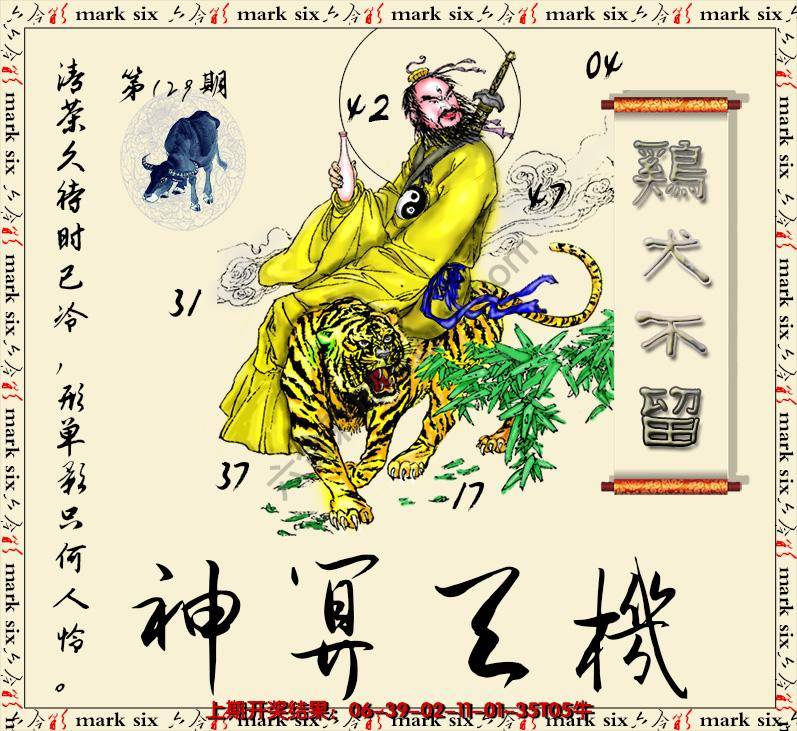 mark six 六合彩 mark six 六合彩 mark six 六合彩 mark six 六合彩 mark six
第129期
清茶久待时已冷,形单影只何人怜。
42
04
47
31
37
17
鷄犬不留
神算天機
上期开奖结果:06-39-02-11-01-35T05牛